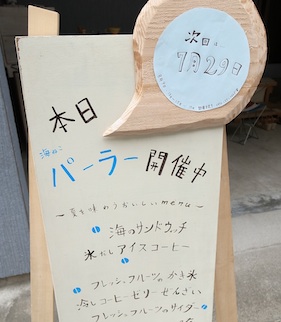 次回は
7月29日
本日
海ねこ
パーラー開催中
〜夏を味わうおいしいmenu〜
海のサンドウィッチ
氷だしアイスコーヒー
フレッシュフルーツのかき氷
冷しコーヒーゼリーぜんざい
フレッシュフルーツのサイダー